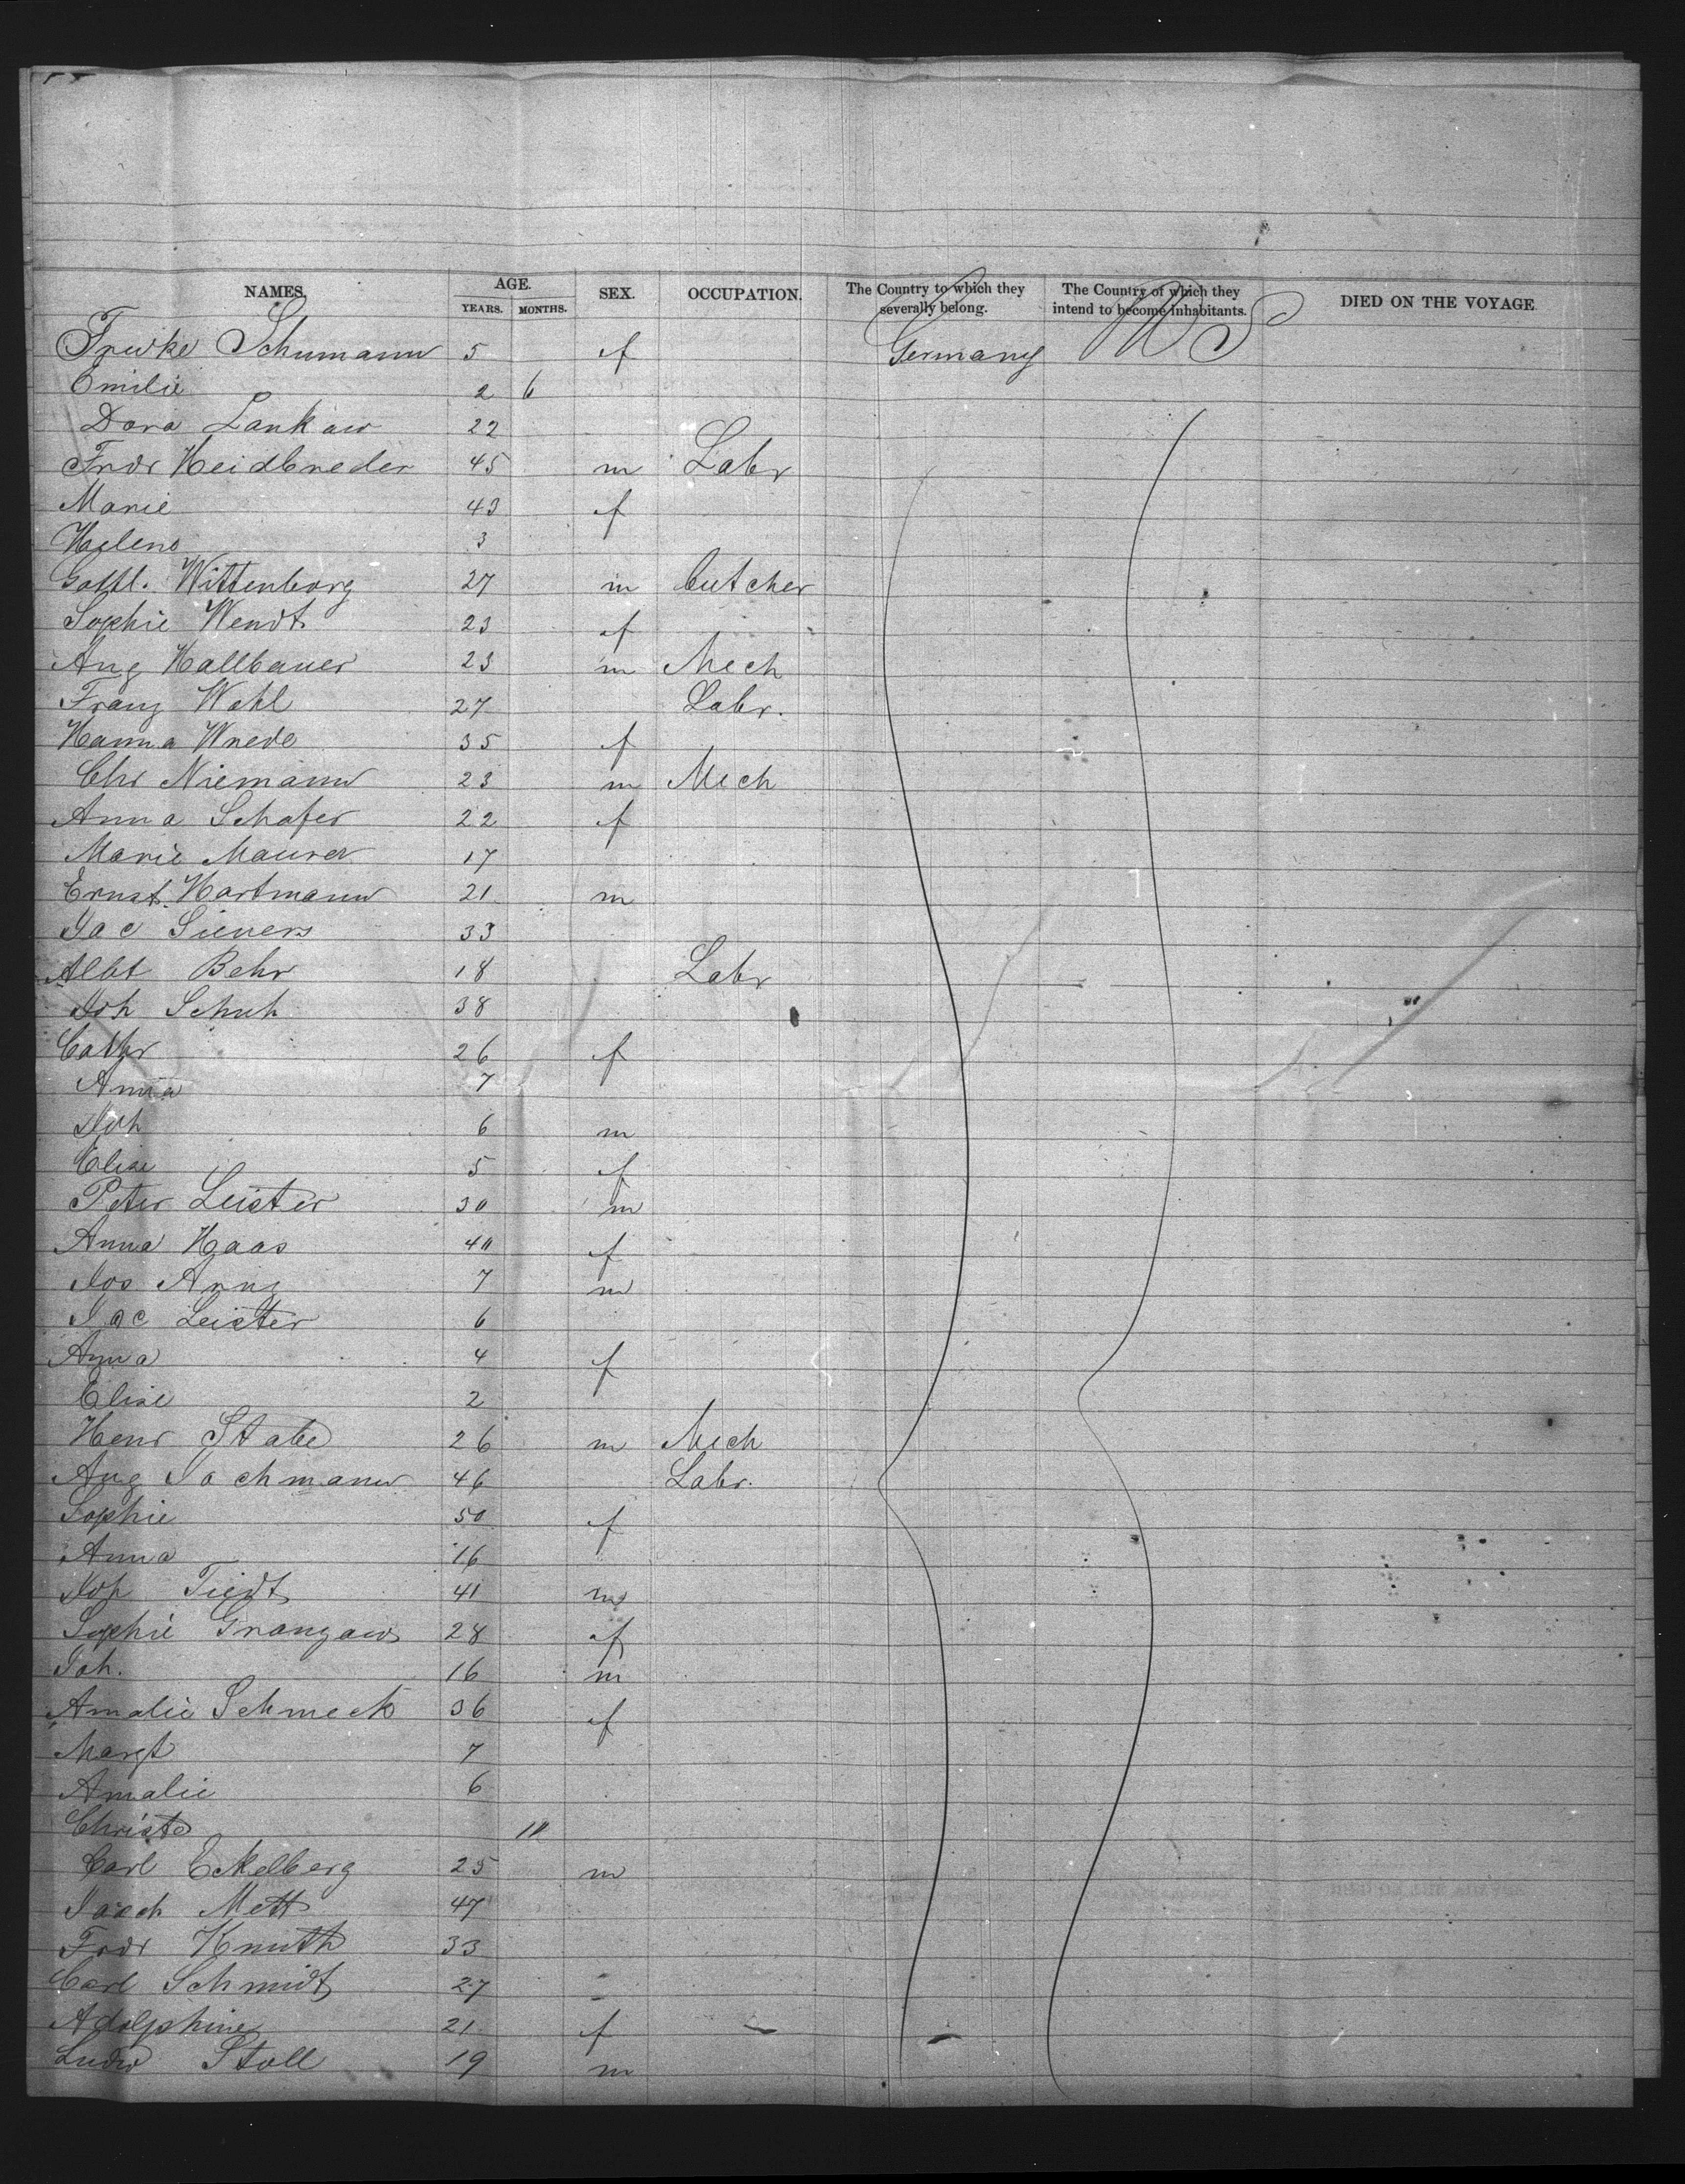 NAMES. AGE. SEX. OCCUPATION. The Country to which they severally belong. The Country of which they intend to become inhabitants. DIED ON THE VOYAGE
YEARS. MONTHS.
Friwke Schumann 5 f Germany U S
Emilie 2 6
Dora Lankow 22
Fridr Heidbreder 45 m Labr
Marie 43 f
Helene 3
Gottl. Wittenborg 27 m butcher
Sophie Wendt 23 f
Aug Hallbauer 23 m Mech
Franz Wahl 27 Labr.
Hanna Wrede 35 f
Chr Niemann 23 m Mech
Anna Schafer 22 f
Marie Maurer 17
Ernst Hartmann 21 m
Jac Sievers 33
Albt Behr 18 Labr
Joh Schuh 38
Cathr 26 f
Anna 7
Joh 6 m
Elise 5 f
Peter Leister 30 m
Anna Haas 40 f
Jos 7 m
Jac Leister 6
Anna 4 f
Elise 2
Henr Stabe 26 m Mech
Aug Jachmann 46 Labr.
Sophie 50 f
Anna 16
Joh Tiedt 41 m
Sophie Granzow 28 f
Joh. 16 m
Amalie Schmeck 36 f
Margt 7
Amalie 6
Christe 10
Carl Eckelberg 25 m
Joach Mett 47
Frdr Knuth 33
Carl Schmidt 27
Adolphine 21 f
Ludw Stoll 19 m